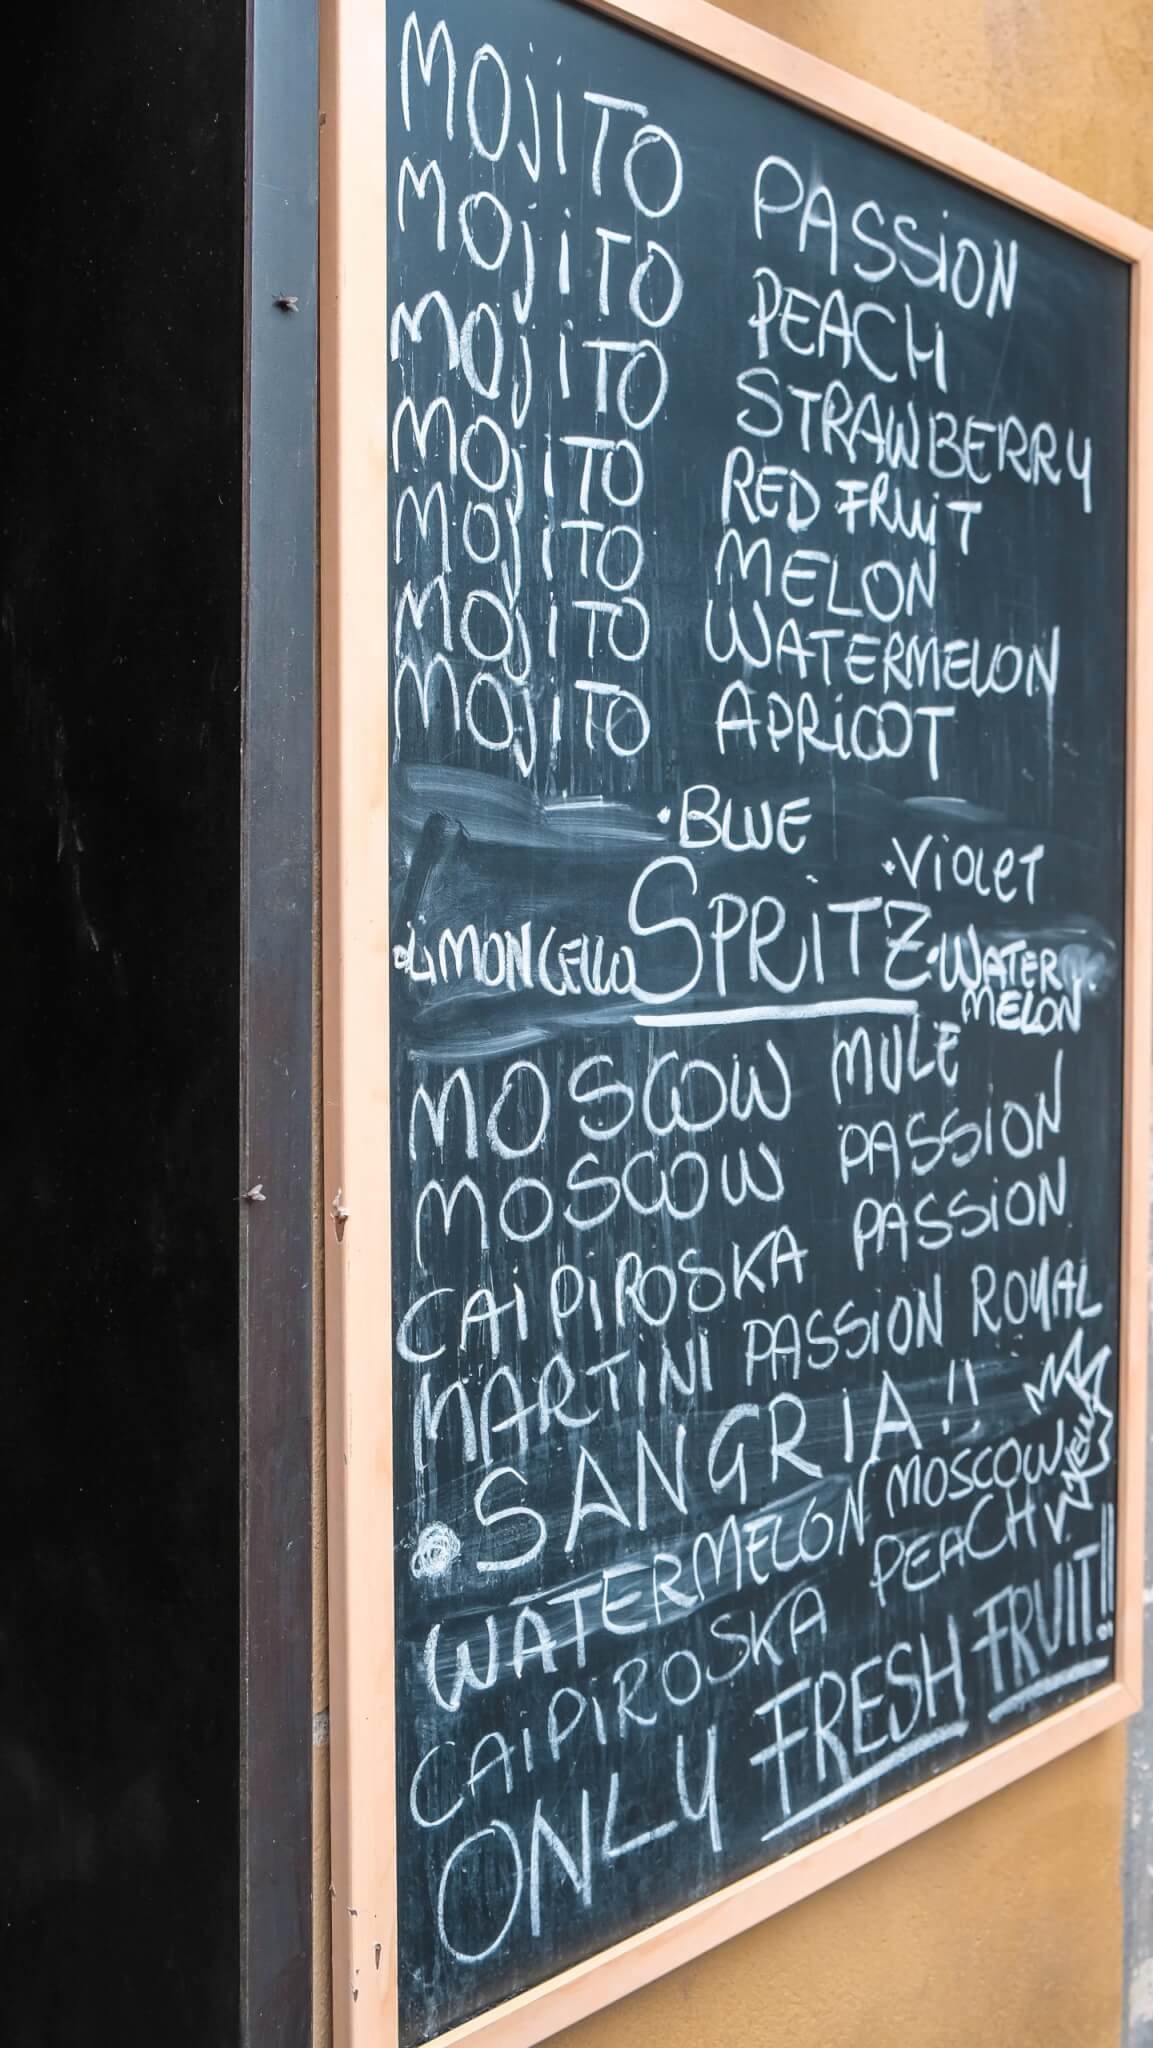 MOJITO PASSION
MOJITO PEACH
MOJITO STRAWBERRY
MOJITO RED FRUIT
MOJITO MELON
MOJITO WATERMELON
MOJITO APRICOT
•BLUE
•VIOLET
•LIMONCELLO SPRITZ •WATER
MELON
MOSCOW MULE
MOSCOW PASSION
CAIPIROSKA PASSION
MARTINI PASSION ROYAL
•SANGRIA!!
WATERMELON MOSCOW NEW
CAIPIROSKA PEACH
ONLY FRESH FRUIT!!